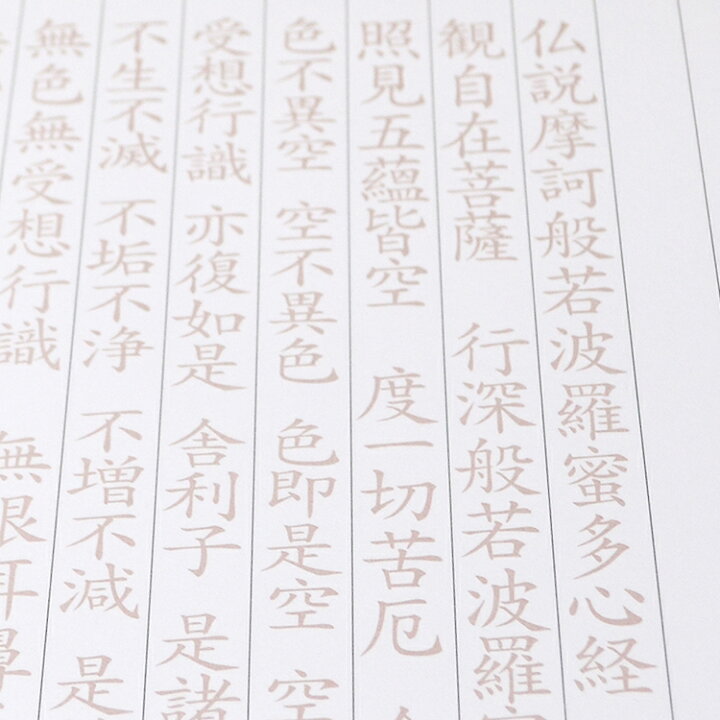 仏説摩訶般若波羅蜜多心経
観自在菩薩 行深般若波羅
照見五蘊皆空 度一切苦厄
色不異空 空不異色 色即是空 空
受想行識 亦復如是 舎利子 是諸
不生不滅 不垢不浄 不増不減 是
無色無受想行識 無眼耳鼻